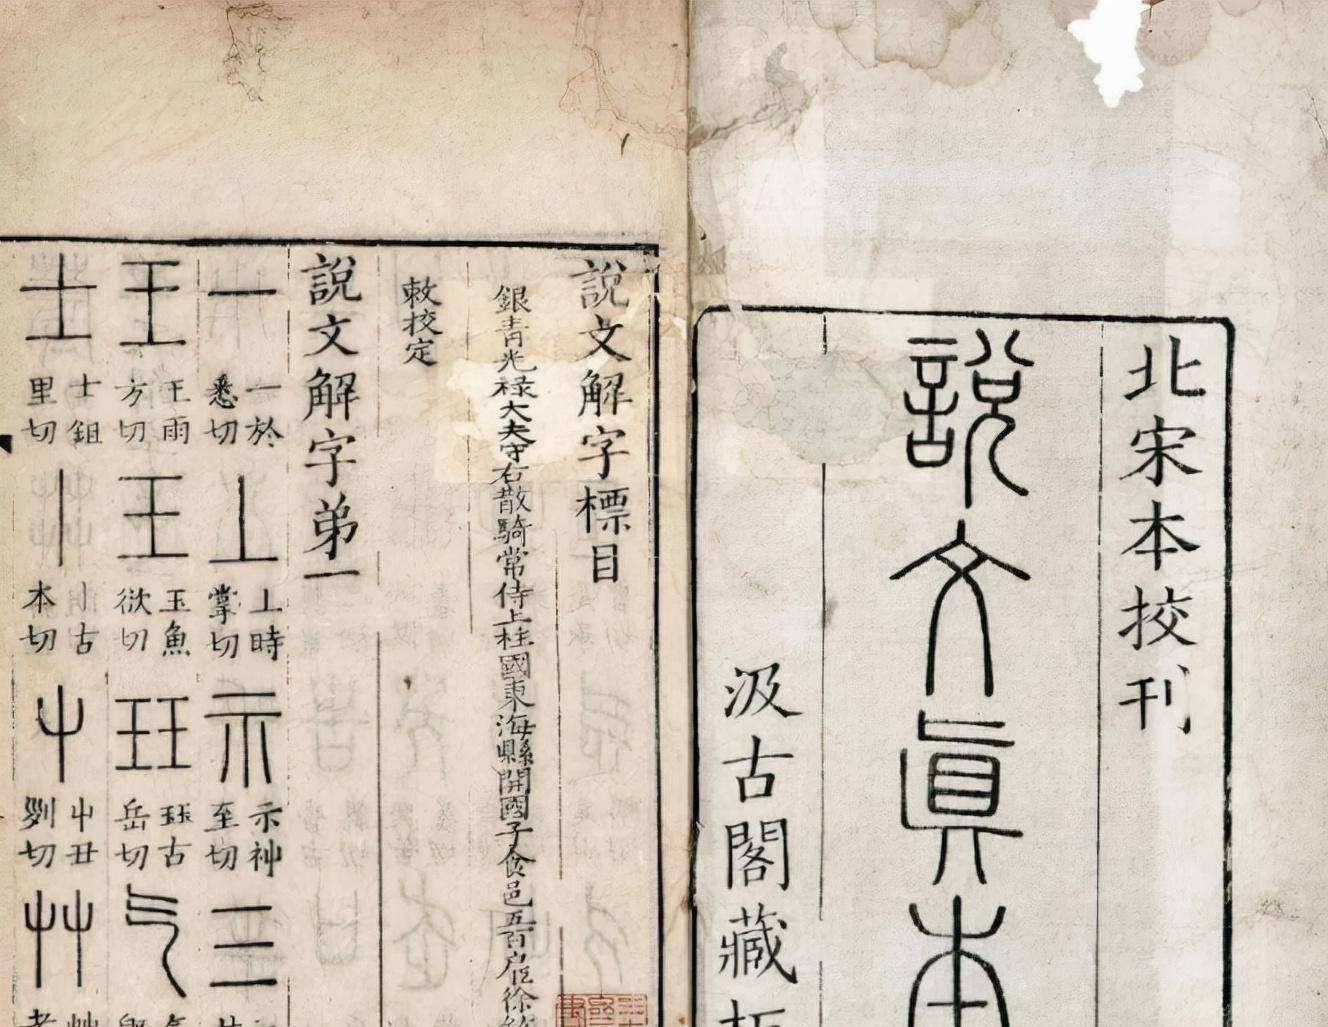 北宋本挍刊
說文眞本
汲古閣藏
說文解字標目
銀青光祿大夫守右散騎常侍上柱國東海縣開國子食邑五百戶臣徐
敕挍定
說文解字弟一
一 一於悉切 丄 丄時掌切 示 示神至切 三
王 王雨方切 玉 玉魚欲切 玨 玨古岳切 气
士 士鉏里切 丨 丨古本切 屮 屮丑列切 艸